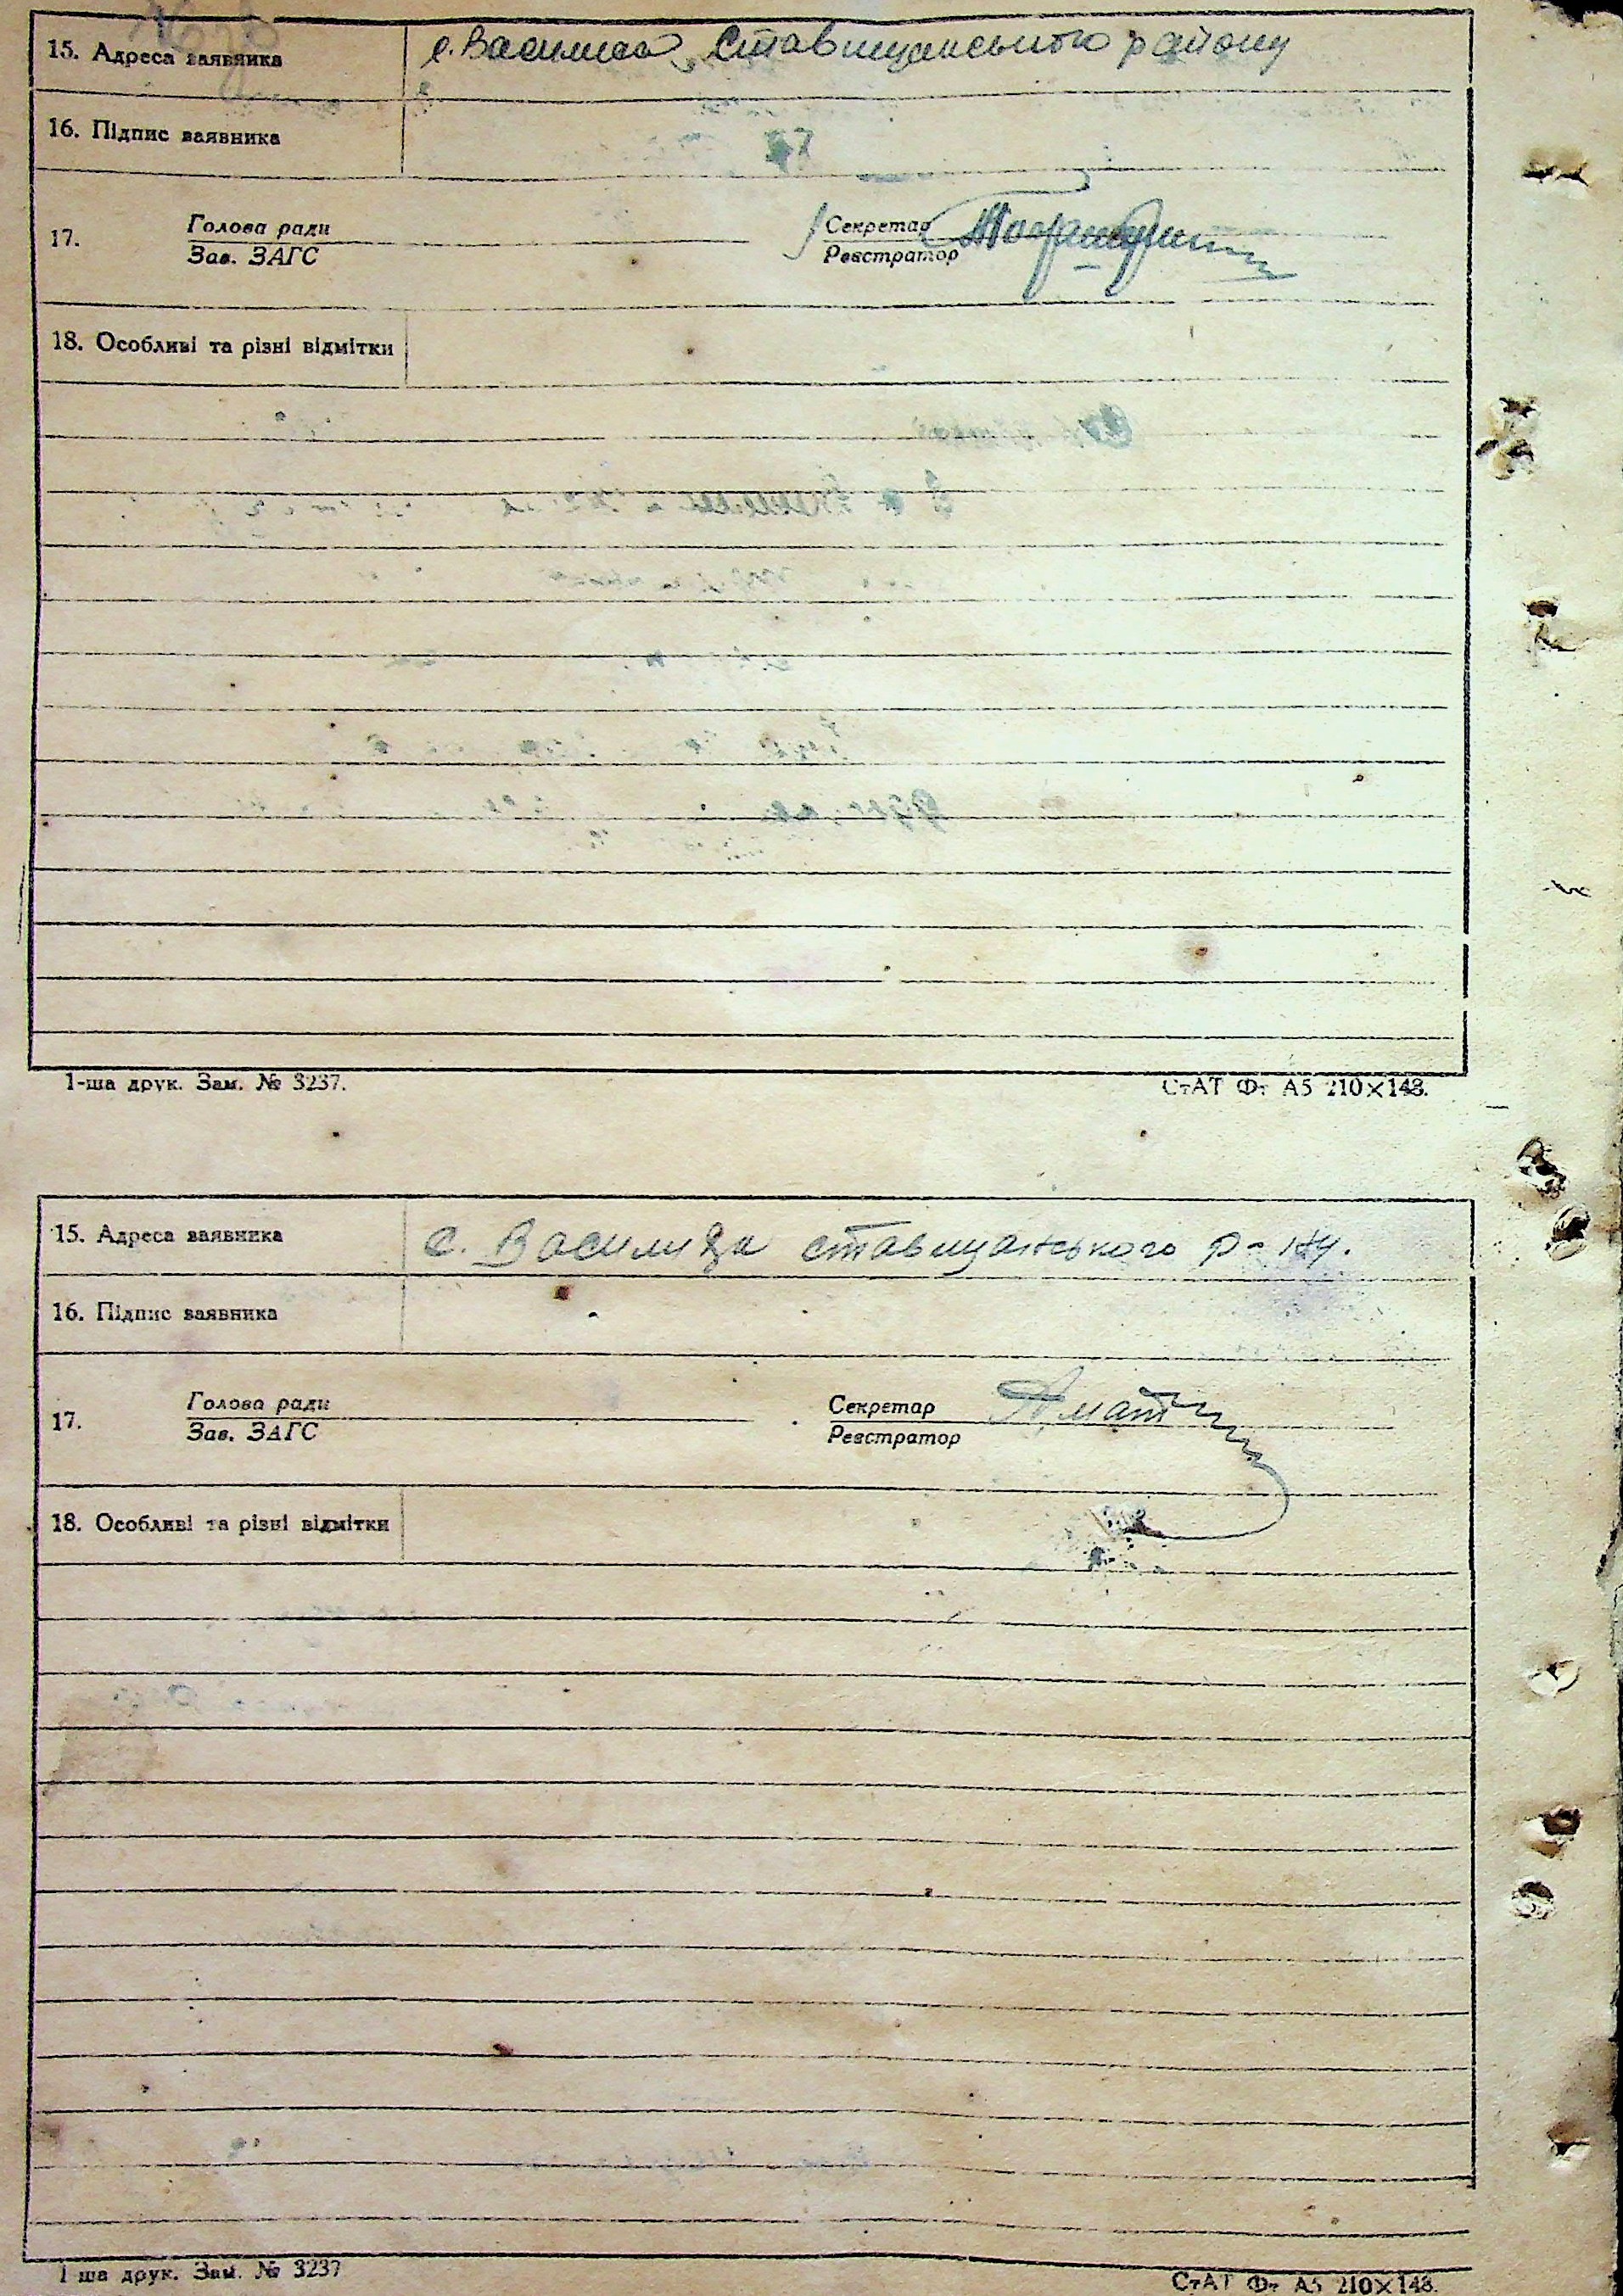 15. Адреса заявника с. Василиса Ставищанського району
16. Підпис заявника
17. Голова ради Секретар
Зав. ЗАГС Реєстратор
18. Особливі та різні відмітки
1-ша друк. Зам. № 3237. СтАТ Фт А5 210×148.
15. Адреса заявника с. Василиха ставищанського р-ну.
16. Підпис заявника
17. Голова ради Секретар
Зав. ЗАГС Реєстратор
18. Особливі та різні відмітки
1 ша друк. Зам. № 3237 СтАТ Фт А5 210×148.